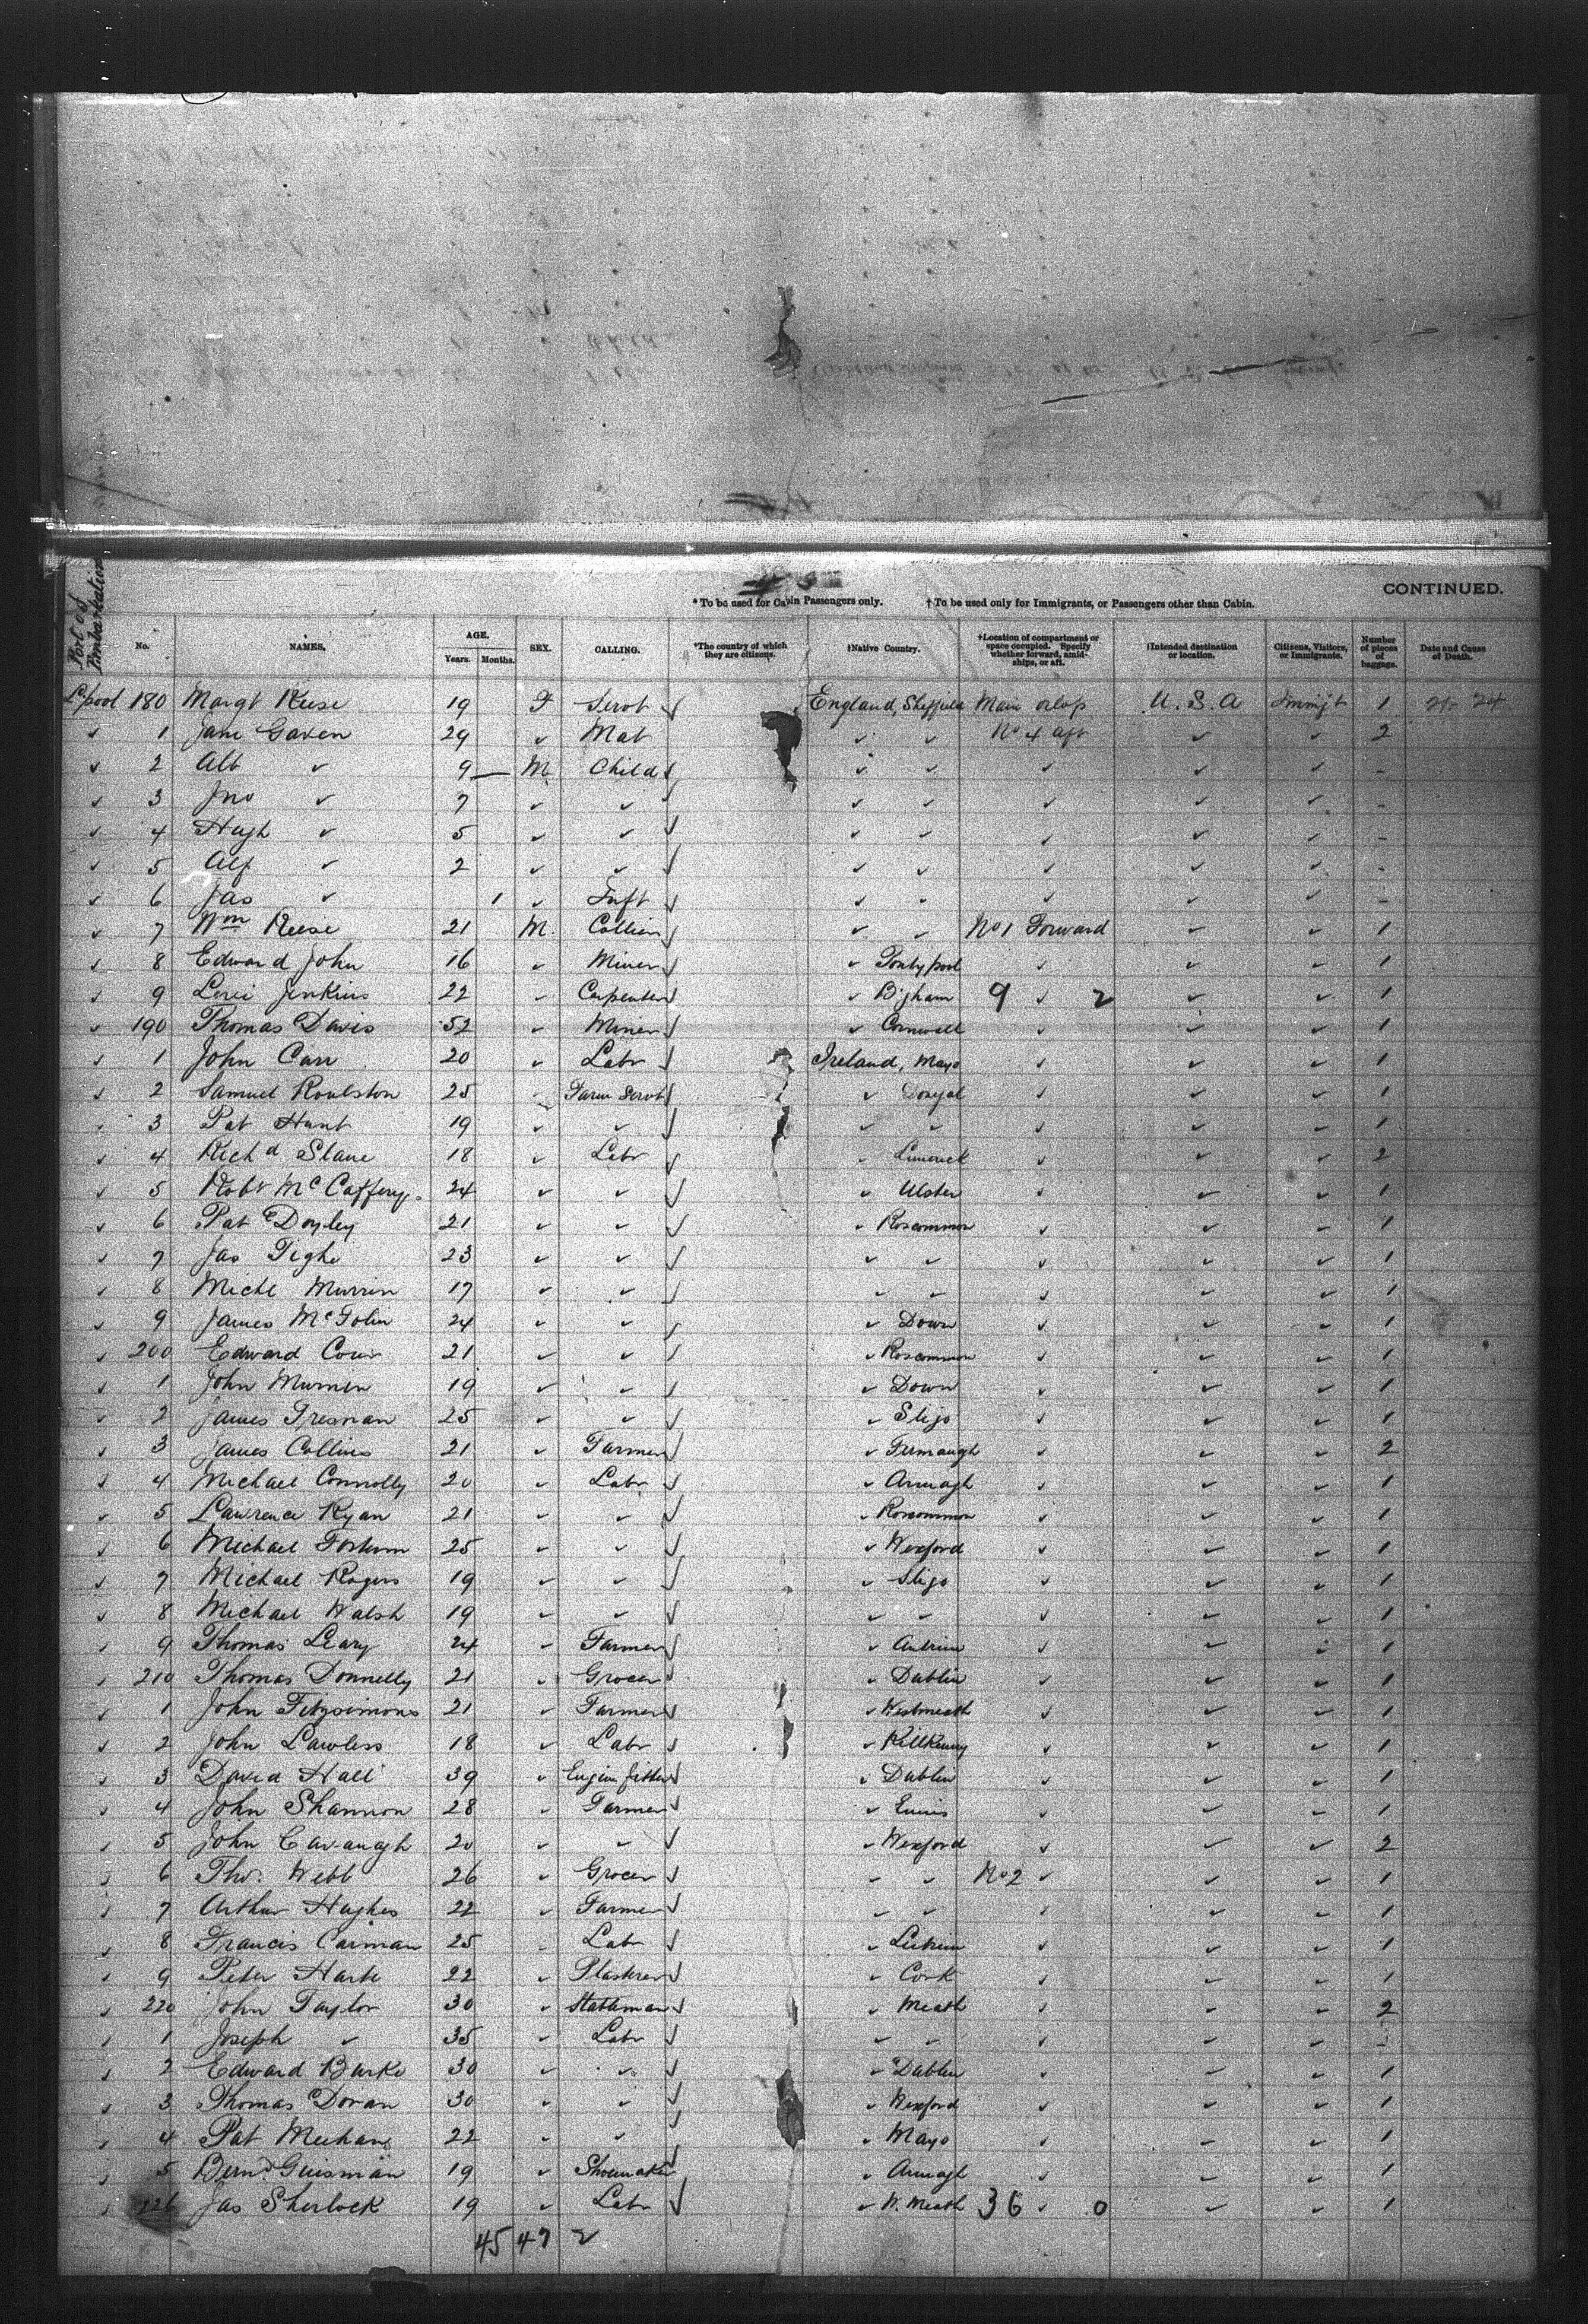 CONTINUED.
* To be used for Cabin Passengers only. † To be used only for Immigrants, or Passengers other than Cabin.
Port of Embarkation No. NAMES. AGE. Years. Months. SEX. CALLING. *The country of which they are citizens. †Native Country. †Location of compartment or space occupied. Specify whether forward, amidships, or aft. †Intended destination or location. Citizens, Visitors, or Immigrants. Number of pieces of baggage. Date and Cause of Death.
L'pool 180 Margt Reese 19 F Servt England, Sheffield Main orlop U.S.A Immigt 1
✓ 1 Jane Gaven 29 ✓ Mat ✓ ✓ No 4 aft ✓ ✓ 2
✓ 2 Alb ✓ 9 — M Child ✓ ✓ ✓ ✓ ✓ -
✓ 3 Jno ✓ 7 ✓ ✓ ✓ ✓ ✓ ✓ ✓ -
✓ 4 Hugh ✓ 5 ✓ ✓ ✓ ✓ ✓ ✓ ✓ -
✓ 5 Alf ✓ 2 ✓ ✓ ✓ ✓ ✓ ✓ ✓ -
✓ 6 Jas ✓ 1 ✓ Inft ✓ ✓ ✓ ✓ ✓ -
✓ 7 Wm Reese 21 M. Collier ✓ ✓ No 1 Forward ✓ ✓ 1
✓ 8 Edward John 16 ✓ Miner ✓ Pontypool ✓ ✓ ✓ 1
✓ 9 Jenkins 22 ✓ Carpenter ✓ B'gham 9 ✓ 2 ✓ ✓ 1
✓ 190 Thomas Davis 52 ✓ Miner ✓ Cornwall ✓ ✓ ✓ 1
✓ 1 John Carr 20 ✓ Labr Ireland, Mayo ✓ ✓ ✓ 1
✓ 2 Samuel Roulston 25 ✓ Farm Servt ✓ Donegal ✓ ✓ ✓ 1
✓ 3 Pat Hunt 19 ✓ ✓ ✓ ✓ ✓ ✓ ✓ 1
✓ 4 Richd Slane 18 ✓ Labr ✓ Limerick ✓ ✓ ✓ 2
✓ 5 Robt McCaffery 24 ✓ ✓ ✓ Ulster ✓ ✓ ✓ 1
✓ 6 Pat Doyley 21 ✓ ✓ ✓ Roscommon ✓ ✓ ✓ 1
✓ 7 Jas Tighe 23 ✓ ✓ ✓ ✓ ✓ ✓ ✓ 1
✓ 8 Michl Murrin 17 ✓ ✓ ✓ ✓ ✓ ✓ ✓ 1
✓ 9 James 24 ✓ ✓ ✓ Down ✓ ✓ ✓ 1
✓ 200 Edward 21 ✓ ✓ ✓ Roscommon ✓ ✓ ✓ 1
✓ 1 John 19 ✓ ✓ ✓ Down ✓ ✓ ✓ 1
✓ 2 James Tresnan 25 ✓ ✓ ✓ Sligo ✓ ✓ ✓ 1
✓ 3 James Collins 21 ✓ Farmer ✓ Firmaugh ✓ ✓ ✓ 2
✓ 4 Michael Connolly 20 ✓ Labr ✓ Armagh ✓ ✓ ✓ 1
✓ 5 Lawrence Ryan 21 ✓ ✓ ✓ Roscommon ✓ ✓ ✓ 1
✓ 6 Michael 25 ✓ ✓ ✓ Wexford ✓ ✓ ✓ 1
✓ 7 Michael Rogers 19 ✓ ✓ ✓ Sligo ✓ ✓ ✓ 1
✓ 8 Michael Walsh 19 ✓ ✓ ✓ ✓ ✓ ✓ ✓ 1
✓ 9 Thomas Leary 24 ✓ Farmer ✓ Antrim ✓ ✓ ✓ 1
✓ 210 Thomas Donnelly 21 ✓ Grocer ✓ Dublin ✓ ✓ ✓ 1
✓ 1 John Fitzsimons 21 ✓ Farmer ✓ Westmeath ✓ ✓ ✓ 1
✓ 2 John Lawless 18 ✓ Labr ✓ Killkenny ✓ ✓ ✓ 1
✓ 3 David Hall 39 ✓ Engine fitter ✓ Dublin ✓ ✓ ✓ 1
✓ 4 John Shannon 28 ✓ Farmer ✓ Ennis ✓ ✓ ✓ 1
✓ 5 John Cavanagh 20 ✓ ✓ ✓ Wexford ✓ ✓ ✓ 2
✓ 6 Tho. Webb 26 ✓ Grocer ✓ ✓ No 2 ✓ ✓ ✓ 1
✓ 7 Arthur Hughes 22 ✓ Farmer ✓ ✓ ✓ ✓ ✓ 1
✓ 8 Francis Carman 25 ✓ Labr ✓ Leitrim ✓ ✓ ✓ 1
✓ 9 Peter Harte 22 ✓ Plasterer ✓ Cork ✓ ✓ ✓ 1
✓ 220 John Taylor 30 ✓ Stableman ✓ Meath ✓ ✓ ✓ 2
✓ 1 Joseph ✓ 35 ✓ Labr ✓ ✓ ✓ ✓ ✓ -
✓ 2 Edward Burke 30 ✓ ✓ ✓ Dublin ✓ ✓ ✓ 1
✓ 3 Thomas Doran 30 ✓ ✓ ✓ Wexford ✓ ✓ ✓ 1
✓ 4 Pat Meehan 22 ✓ ✓ ✓ Mayo ✓ ✓ ✓ 1
✓ 5 Bernd Guisman 19 ✓ Shoemaker ✓ Armagh ✓ ✓ ✓ 1
✓ 226 Jas Sherlock 19 ✓ Labr ✓ W. Meath 36 ✓ 0 ✓ ✓ 1
45 47 2